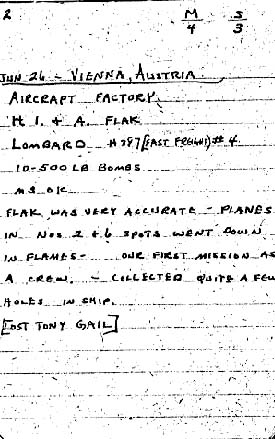 2
M S
4 3
JUN 26 - VIENNA, AUSTRIA
AIRCRAFT FACTORY.
H. I. & A. FLAK
LOMBARD #787 [FAST FREIGHT] # 4
10-500 LB BOMBS
MS OK
FLAK WAS VERY ACCURATE - PLANES
IN NOS 2 & 6 SPOTS WENT DOWN
IN FLAMES - OUR FIRST MISSION AS
A CREW. - COLLECTED QUITE A FEW
HOLES IN SHIP.
[LOST TONY GAIL]